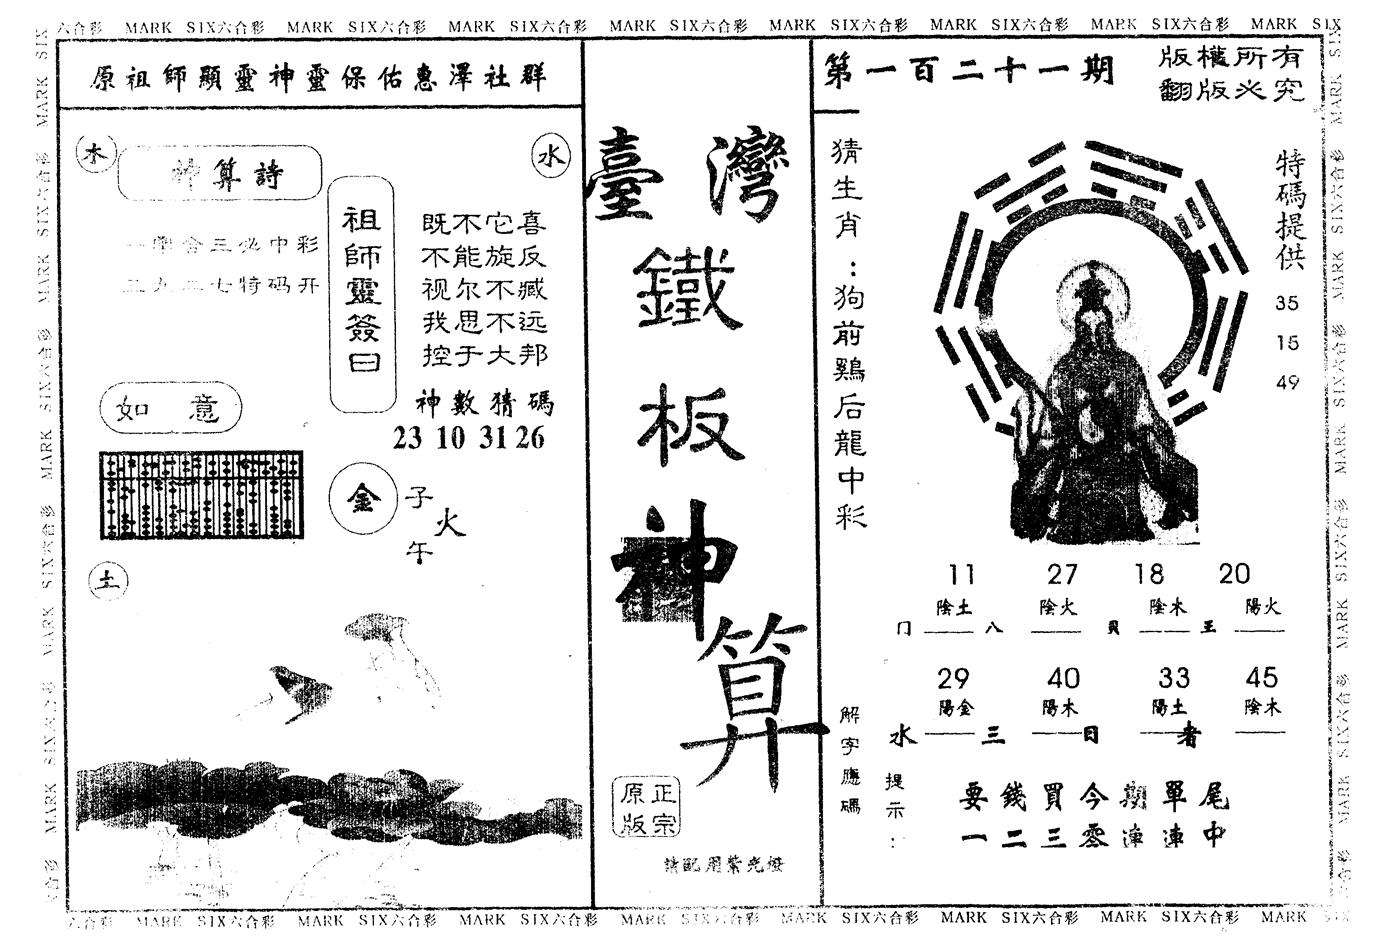 六合彩 MARK SIX六合彩 MARK SIX六合彩 MARK SIX六合彩 MARK SIX六合彩 MARK SIX六合彩 MARK SIX六合彩 MARK SIX六合彩 MARK SIX
原祖師顯靈神靈保佑惠澤社群
木
神算詩
水
彩中必三合單一
开码特七二九三
祖師靈簽曰
既不它喜
不能旋反
视尔不臧
我思不远
控于大邦
神數猜碼
23 10 31 26
如意
金
子
火
午
土
臺灣
鐵
板
神
算
正宗
原版
請配用紫光燈
第一百二十一期
版權所有
翻版必究
猜生肖:狗前鷄后龍中彩
特碼提供
35
15
49
11 27 18 20
陰土 陰火 陰木 陽火
门 八 貝 王
29 40 33 45
陽金 陽木 陽土 陰木
水 三 日 者
解字應碼
提示:
要錢買今期單尾
一二三零連連中
六合彩 MARK SIX六合彩 MARK SIX六合彩 MARK SIX六合彩 MARK SIX六合彩 MARK SIX六合彩 MARK SIX六合彩 MARK SIX六合彩 MARK SIX